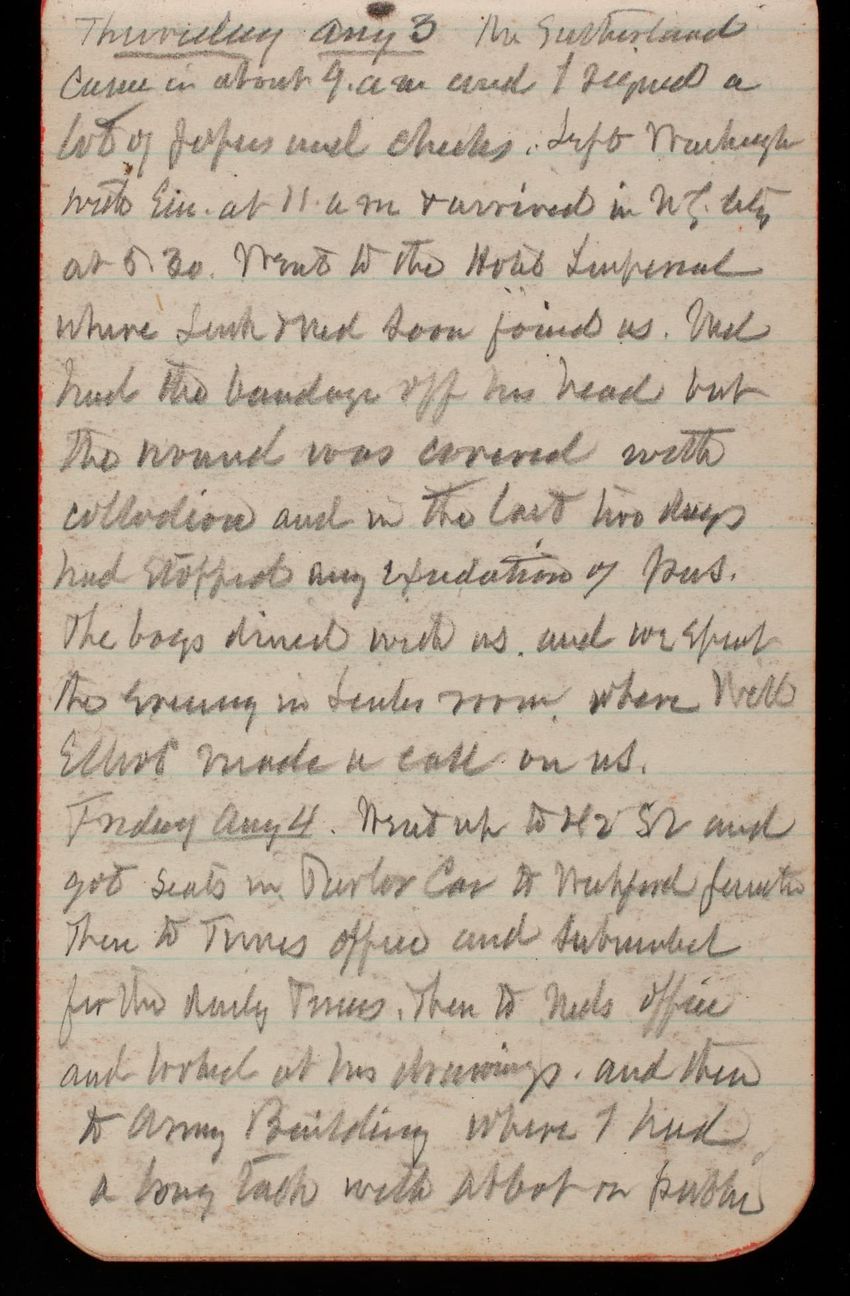 Thursday Aug 3 Mr Sutherland
came in about 9. a m and I signed a
lot of papers and checks. Left
with Em. at 11. a m & arrived in N.Y. City
at 5.30. Went to the Hotel Imperial
where & Ned soon joined us. Ned
had the bandage off his head but
the wound was covered with
collodion and in the last two days
had stopped any exudation of pus.
The boys dined with us. and we spent
the evening in room. where Will
Elliot made a call on us.
Friday Aug 4. Went up to 42 St and
got seats in Parlor Car to
Then to Times office and subscribed
for the daily Times. Then to Neds office
and looked at his drawings. and then
to Army Building where I had
a long talk with Abbot on public